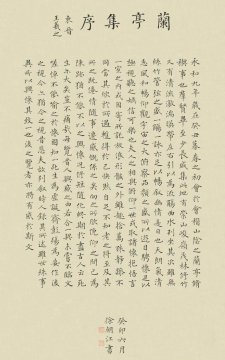 蘭亭集序
東晉
王羲之
永和九年歲在癸丑暮春之初會于會稽山陰之蘭亭脩
禊事也群賢畢至少長咸集此地有崇山峻嶺茂林脩竹
又有清流激湍映帶左右引以為流觴曲水列坐其次雖無
絲竹管弦之盛一觴一詠亦足以暢敘幽情是日也天朗氣清
惠風和暢仰觀宇宙之大俯察品類之盛所以遊目騁懷足以
極視聽之娛信可樂也夫人之相與俯仰一世或取諸懷抱悟言
一室之內或因寄所託放浪形骸之外雖趣舍萬殊靜躁不
同當其欣於所遇暫得於己快然自足不知老之將至及其
所之既倦情隨事遷感慨係之矣向之所欣俛仰之間已為
陳跡猶不能不以之興懷況脩短隨化終期於盡古人云死
生亦大矣豈不痛哉每覽昔人興感之由若合一契未嘗不臨文
嗟悼不能喻之於懷固知一死生為虛誕齊彭殤為妄作後
之視今亦猶今之視昔悲夫故列敘時人錄其所述雖世殊事
異所以興懷其致一也後之覽者亦將有感於斯文
癸卯六月
徐朝江書